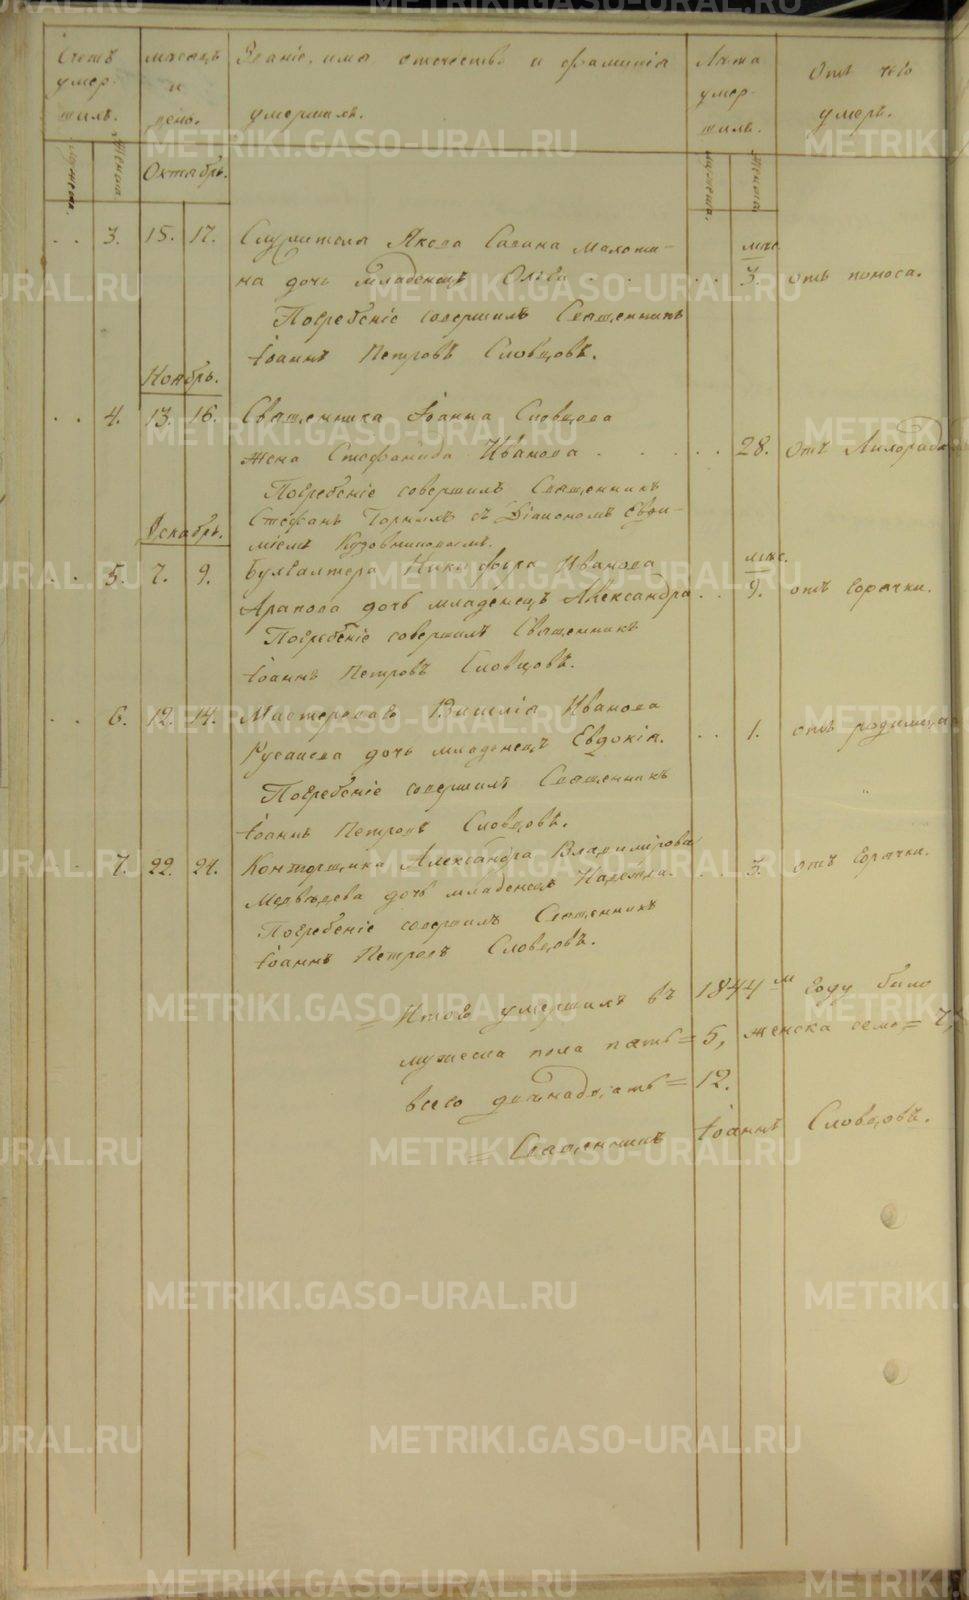 METRIKI.GASO-URAL.RU
Счетъ умершихъ. мѣсяцъ и день. Званіе, имя отечество и фамилія умершихъ. Лѣта умершихъ. Отъ чего умеръ.
мужеска. Женска. мужеска. Женска.
Октябрь.
. . 3. 15. 17. Служителя Якова Савина
на дочь младенецъ Ольга . . . . мѣс. 3. отъ поноса.
Погребеніе совершилъ Священникъ
Іоаннъ Петровъ Словцовъ.
Ноябрь.
. . 4. 13. 16. Священника Іоанна Словцова
жена Стефанида Иванова . . . . . 28. отъ
Погребеніе совершилъ Священникъ
Стефанъ съ Діакономъ Евѳи-
міемъ
Декабрь.
. . 5. 7. 9. Бухгалтера Никифора Иванова мѣс.
Арапова дочь младенецъ Александра . . 9. отъ горячки.
Погребеніе совершилъ Священникъ
Іоаннъ Петровъ Словцовъ.
. . 6. 12. 14. Мастероваго Василія Иванова
Русанова дочь младенецъ Евдокія. . . 1. отъ родимца
Погребеніе совершилъ Священникъ
Іоаннъ Петровъ Словцовъ.
. 7. 22. 24. Конторщика Александра Владимірова
Медвѣдева дочь младенецъ Надежда. . . 3. отъ горячки.
Погребеніе совершилъ Священникъ
Іоаннъ Петровъ Словцовъ.
= Итого умершихъ въ 1844м году было
мужеска пола пять = 5, женска семь = 7,
всего двенадцать = 12.
= Священникъ Іоаннъ Словцовъ.